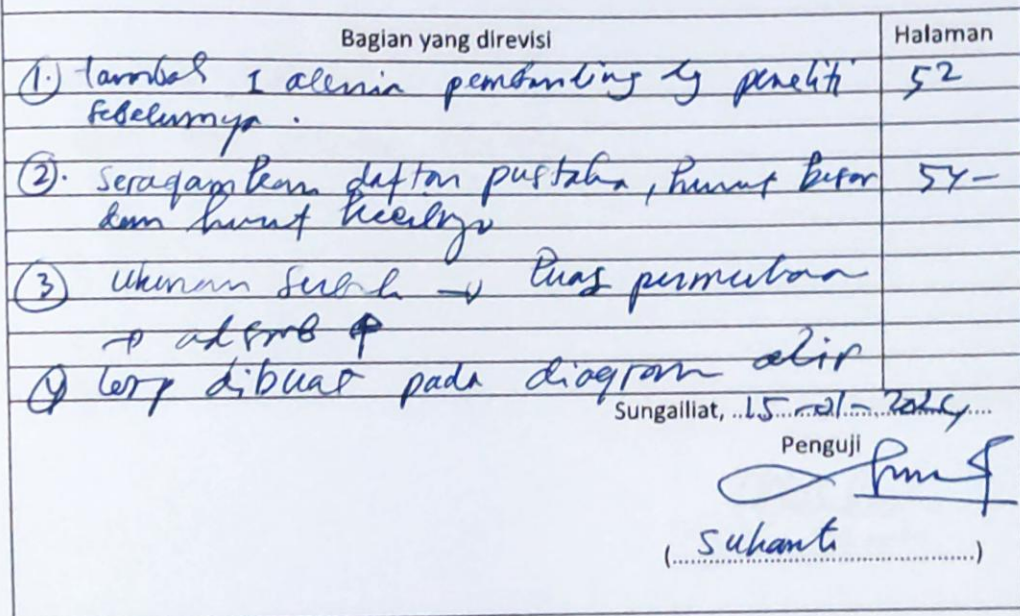 Bagian yang direvisi Halaman
1. tambah 1 alenia pembanding dg peneliti 52
sebelumnya.
2. seragamkan daftar pustaka, huruf besar 54-
dan huruf kecilnya
3 ukuran serbuk → luas permukaan
→ adsorb ↑
4 dibuat pada diagram alir
Sungailiat, 15-01-2024
Penguji
(Sukanti)